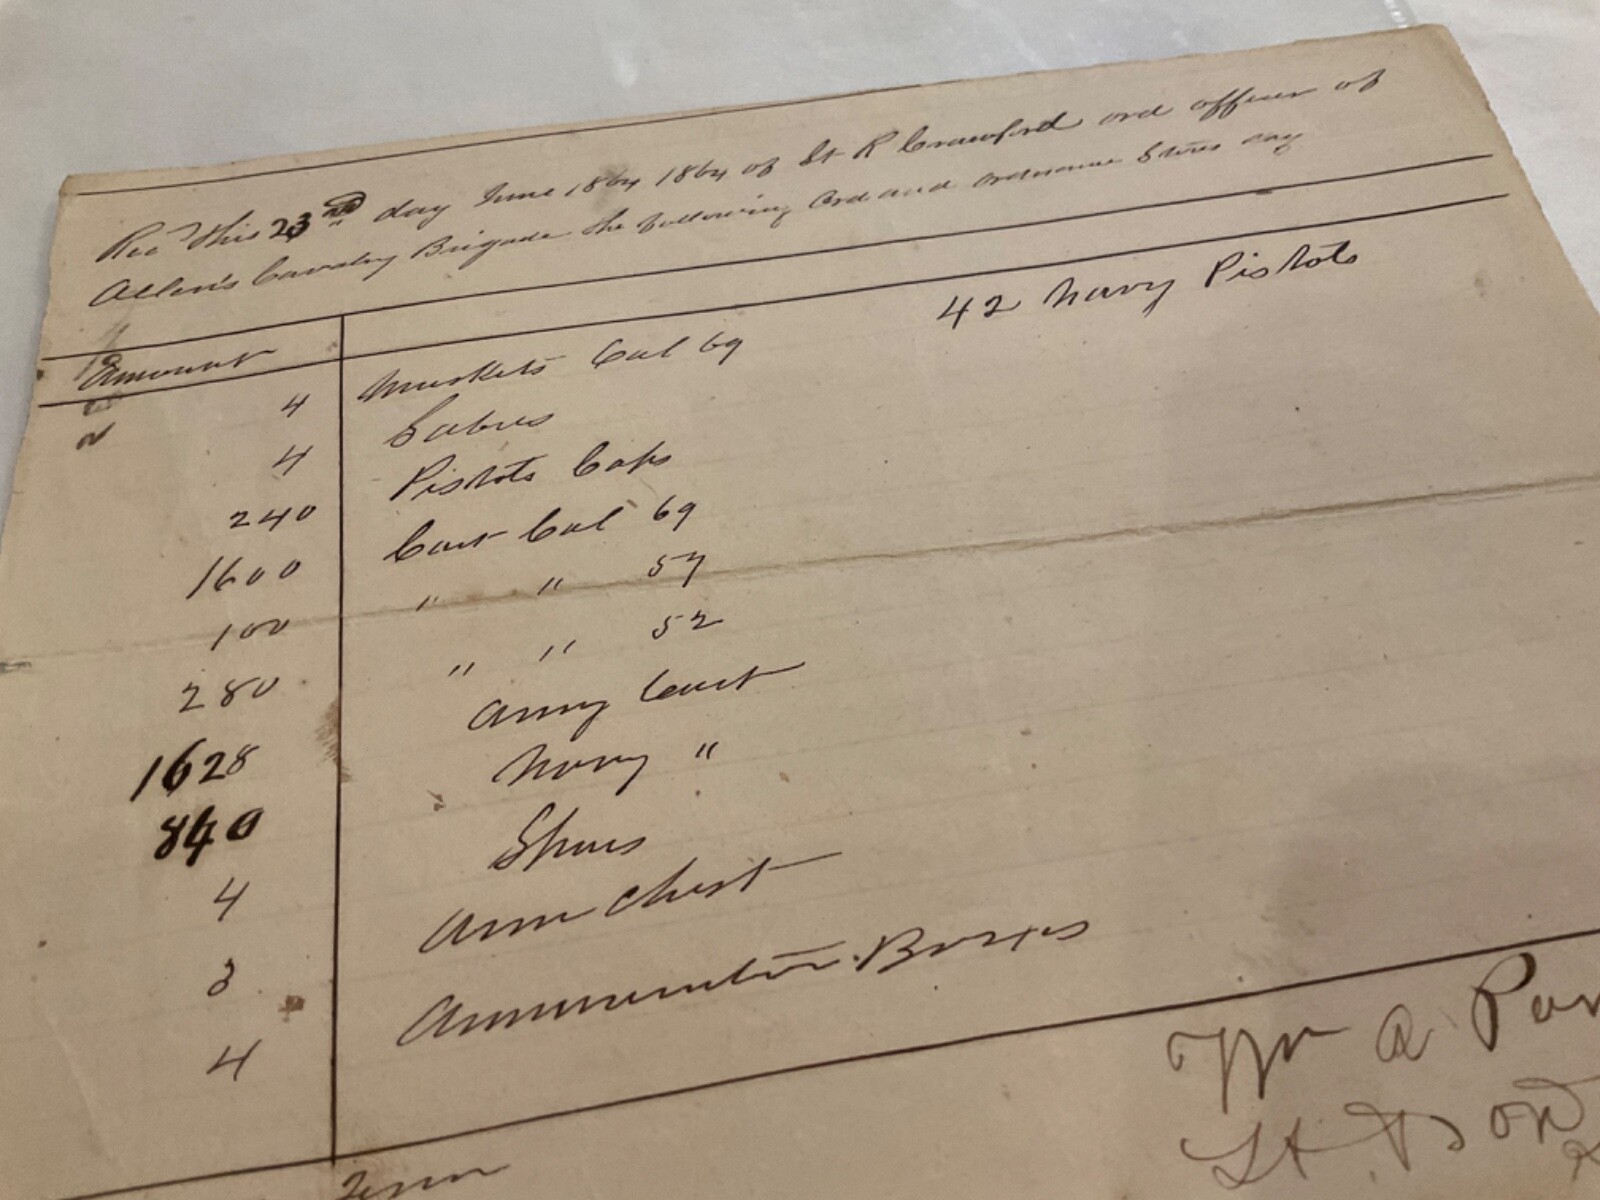 Rec'd this 23rd day June 1864 1864 of Lt R Crawford ord officer of
Allen's Cavalry Brigade the following Ord and ordnance Stores say
Amount
42 Navy Pistols
4 Muskets Cal 69
4 Sabres
240 Pistols Caps
1600 Cart Cal 69
100 " " 57
280 " " 52
1628 Army Cart
840 Navy "
4 Spurs
3 Arm Chest
4 Ammunition Boxes
Wm A
Lt